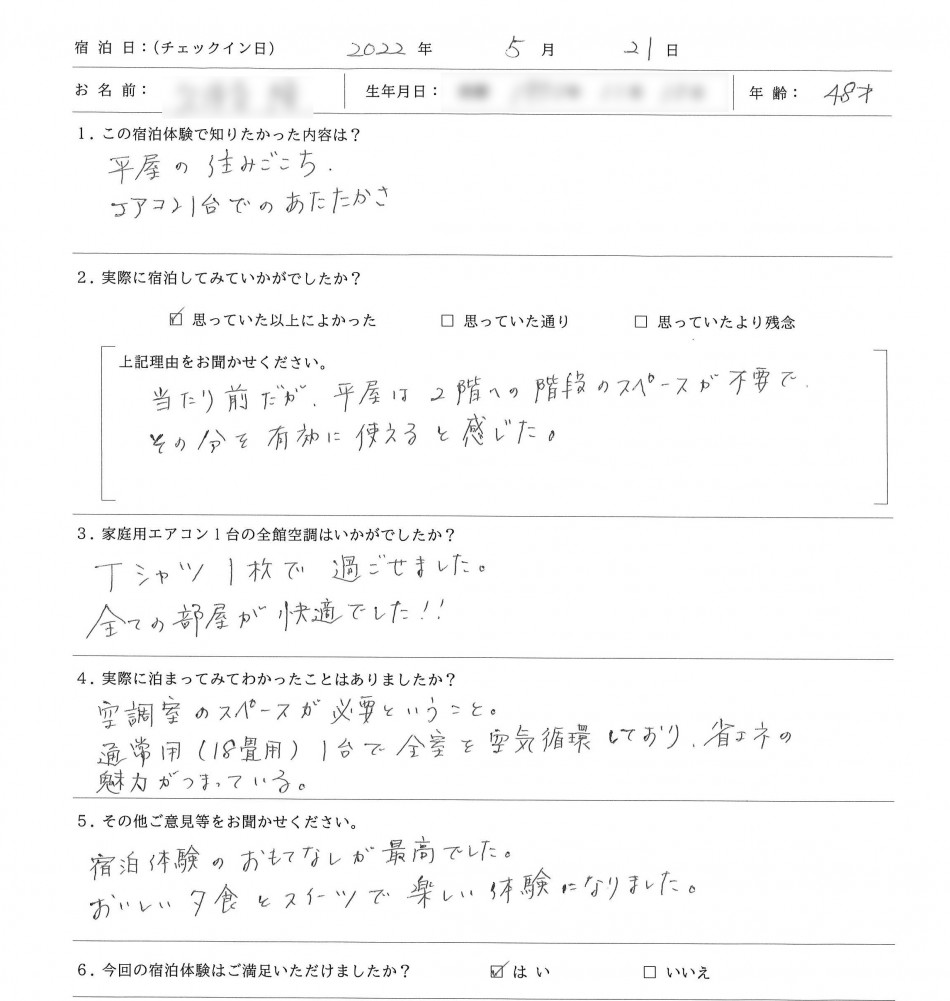 宿泊日：（チェックイン日） 2022 年 5 月 21 日
お名前： 生年月日： 年齢： 48才
1．この宿泊体験で知りたかった内容は？
平屋の住みごこち．
エアコン1台でのあたたかさ
2．実際に宿泊してみていかがでしたか？
☑ 思っていた以上によかった □ 思っていた通り □ 思っていたより残念
上記理由をお聞かせください。
当たり前だが、平屋は2階への階段のスペースが不要で、
その分を有効に使えると感じた。
3．家庭用エアコン1台の全館空調はいかがでしたか？
Tシャツ1枚で過ごせました。
全ての部屋が快適でした！！
4．実際に泊まってみてわかったことはありましたか？
空調室のスペースが必要ということ。
通常用（18畳用）1台で全室を空気循環しており、省エネの
魅力がつまっている。
5．その他ご意見等をお聞かせください。
宿泊体験のおもてなしが最高でした。
おいしい夕食とスイーツで楽しい体験になりました。
6．今回の宿泊体験はご満足いただけましたか？ ☑ はい □ いいえ